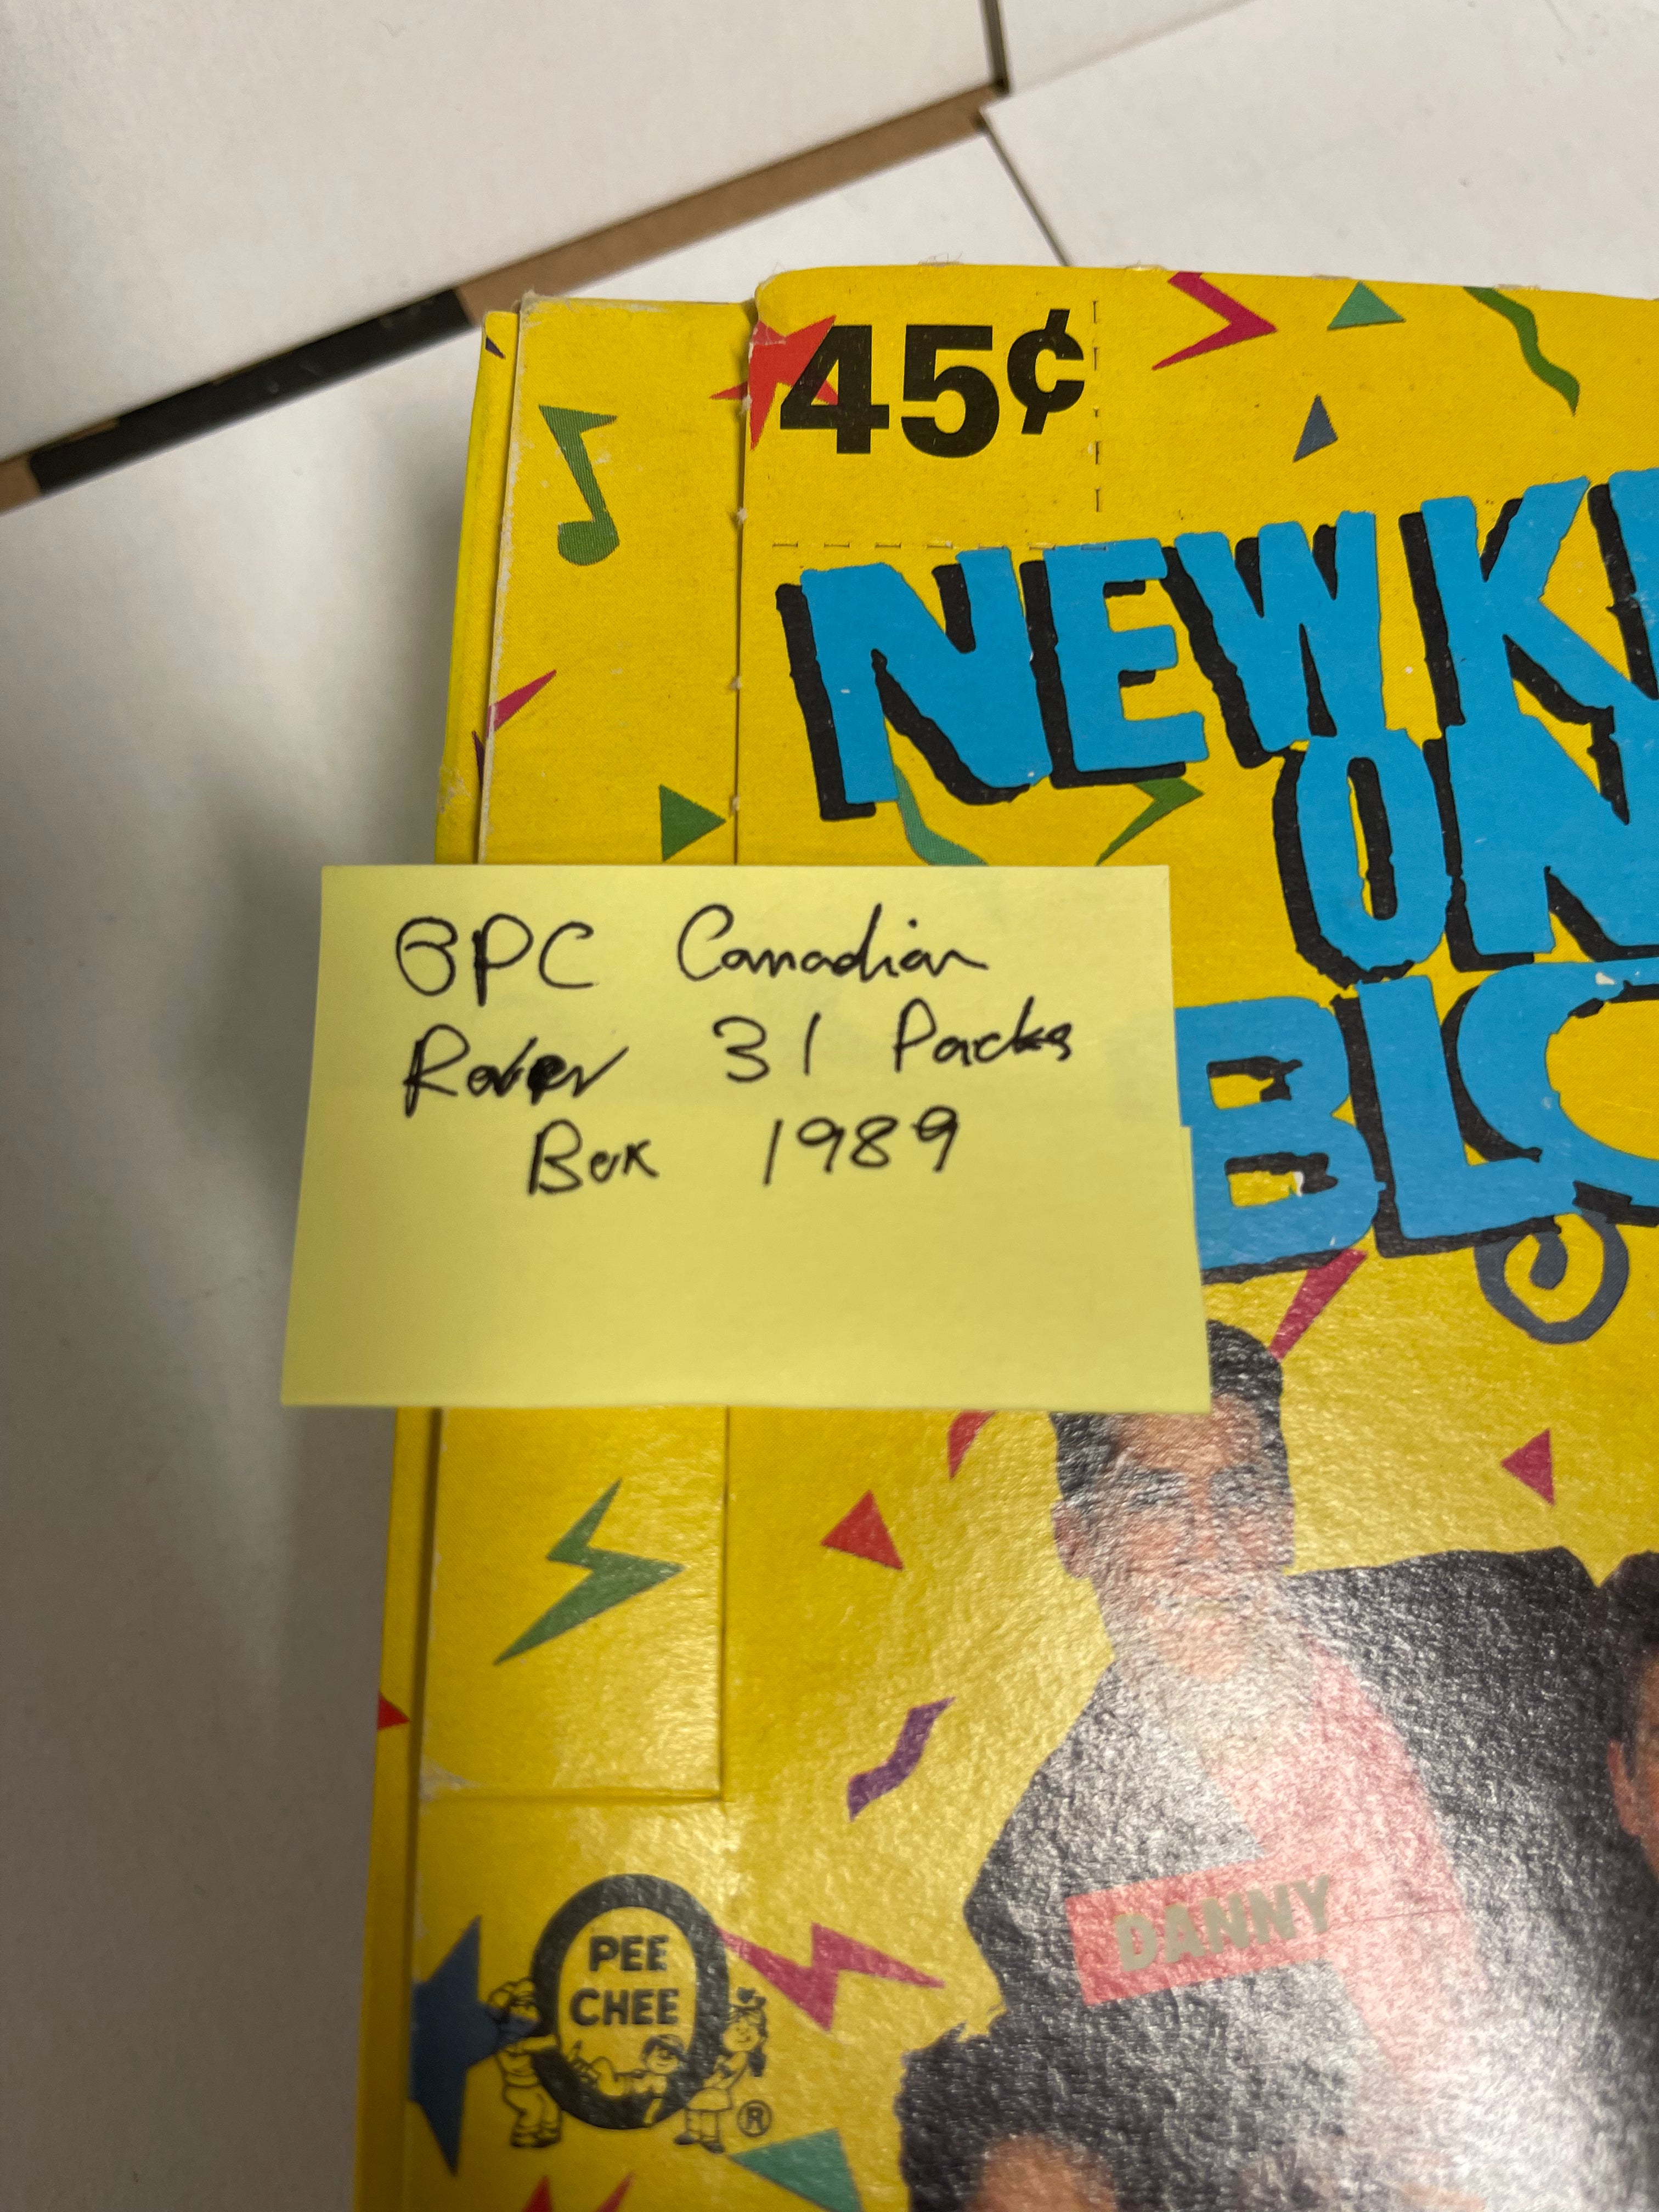 45¢
NEW KI
ON
BLO
OPC Canadian
Rarer 31 Packs
Box 1989
DANNY
O
PEE
CHEE
®